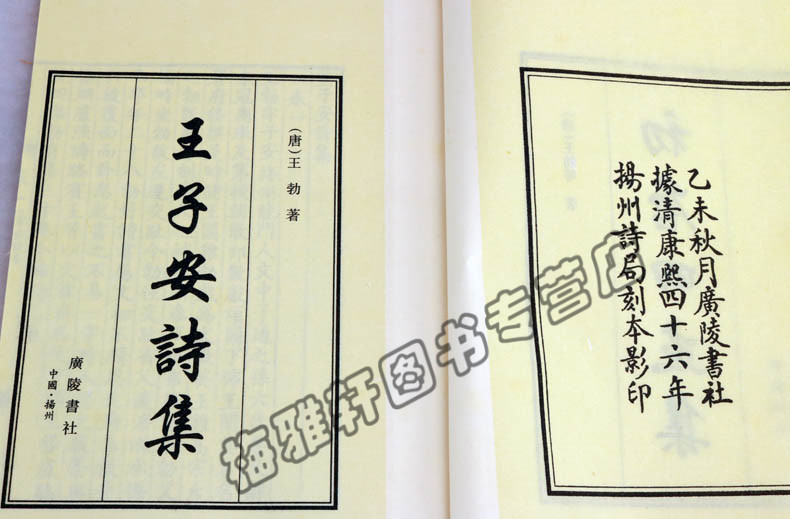 (唐)王勃 著
王子安詩集
廣陵書社
中國·揚州
乙未秋月廣陵書社
據清康熙四十六年
揚州詩局刻本影印
梅雅轩图书专营店